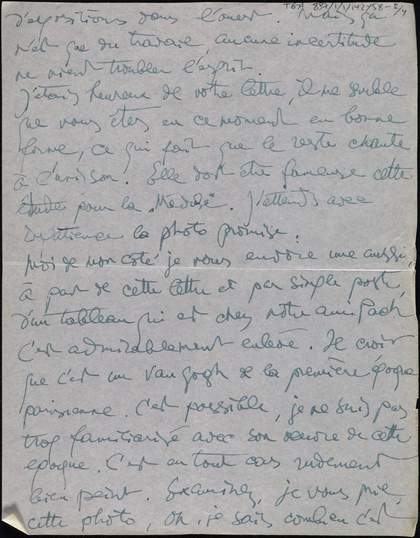 d'expositions dans l'ouest. Mais ça
n'est que du travail, aucune incertitude
ne vient troubler l'esprit.
J'étais heureux de votre lettre, il me semble
que vous êtes en ce moment en bonne
forme, ce qui fait que le reste chante
à l'unisson. Elle doit être fameuse cette
étude pour la "Meduse". J'attends avec
impatience la photo promise.
Moi de mon coté je vous envoie une aussi,
à part de cette lettre et par simple post,
d'un tableau qui est chez notre ami Pach
C'est admirablement enlevé. Je crois
que c'est un Van Gogh de la première époque
parisienne. C'est possible, je ne suis pas
trop familiarisé avec son oeuvre de cette
epoque. C'est en tout cas rudement
bien peint. Examinez, je vous prie,
cette photo, Oh, je sais combien c'est